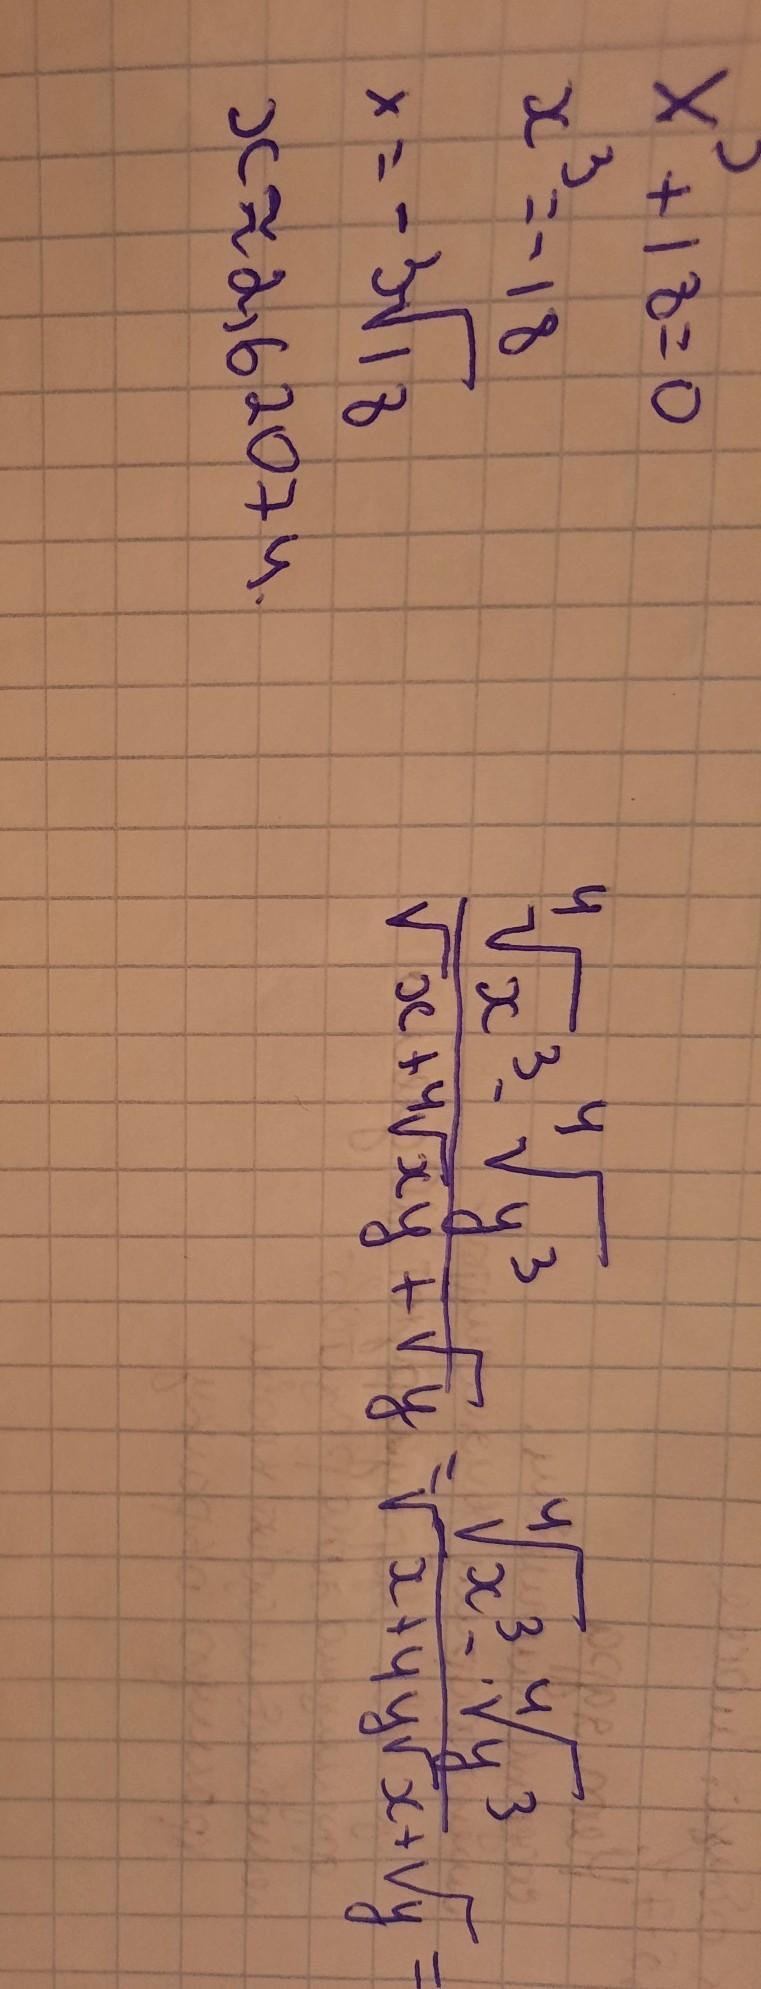 x³ + 18 = 0
x³ = -18
x = - ³√18
x ≈ 2,62074.
⁴√x³ - ⁴√y³ / √x + 4√xy + √y = ⁴√x³ - ⁴√y³ / √x + 4y√x + √y =